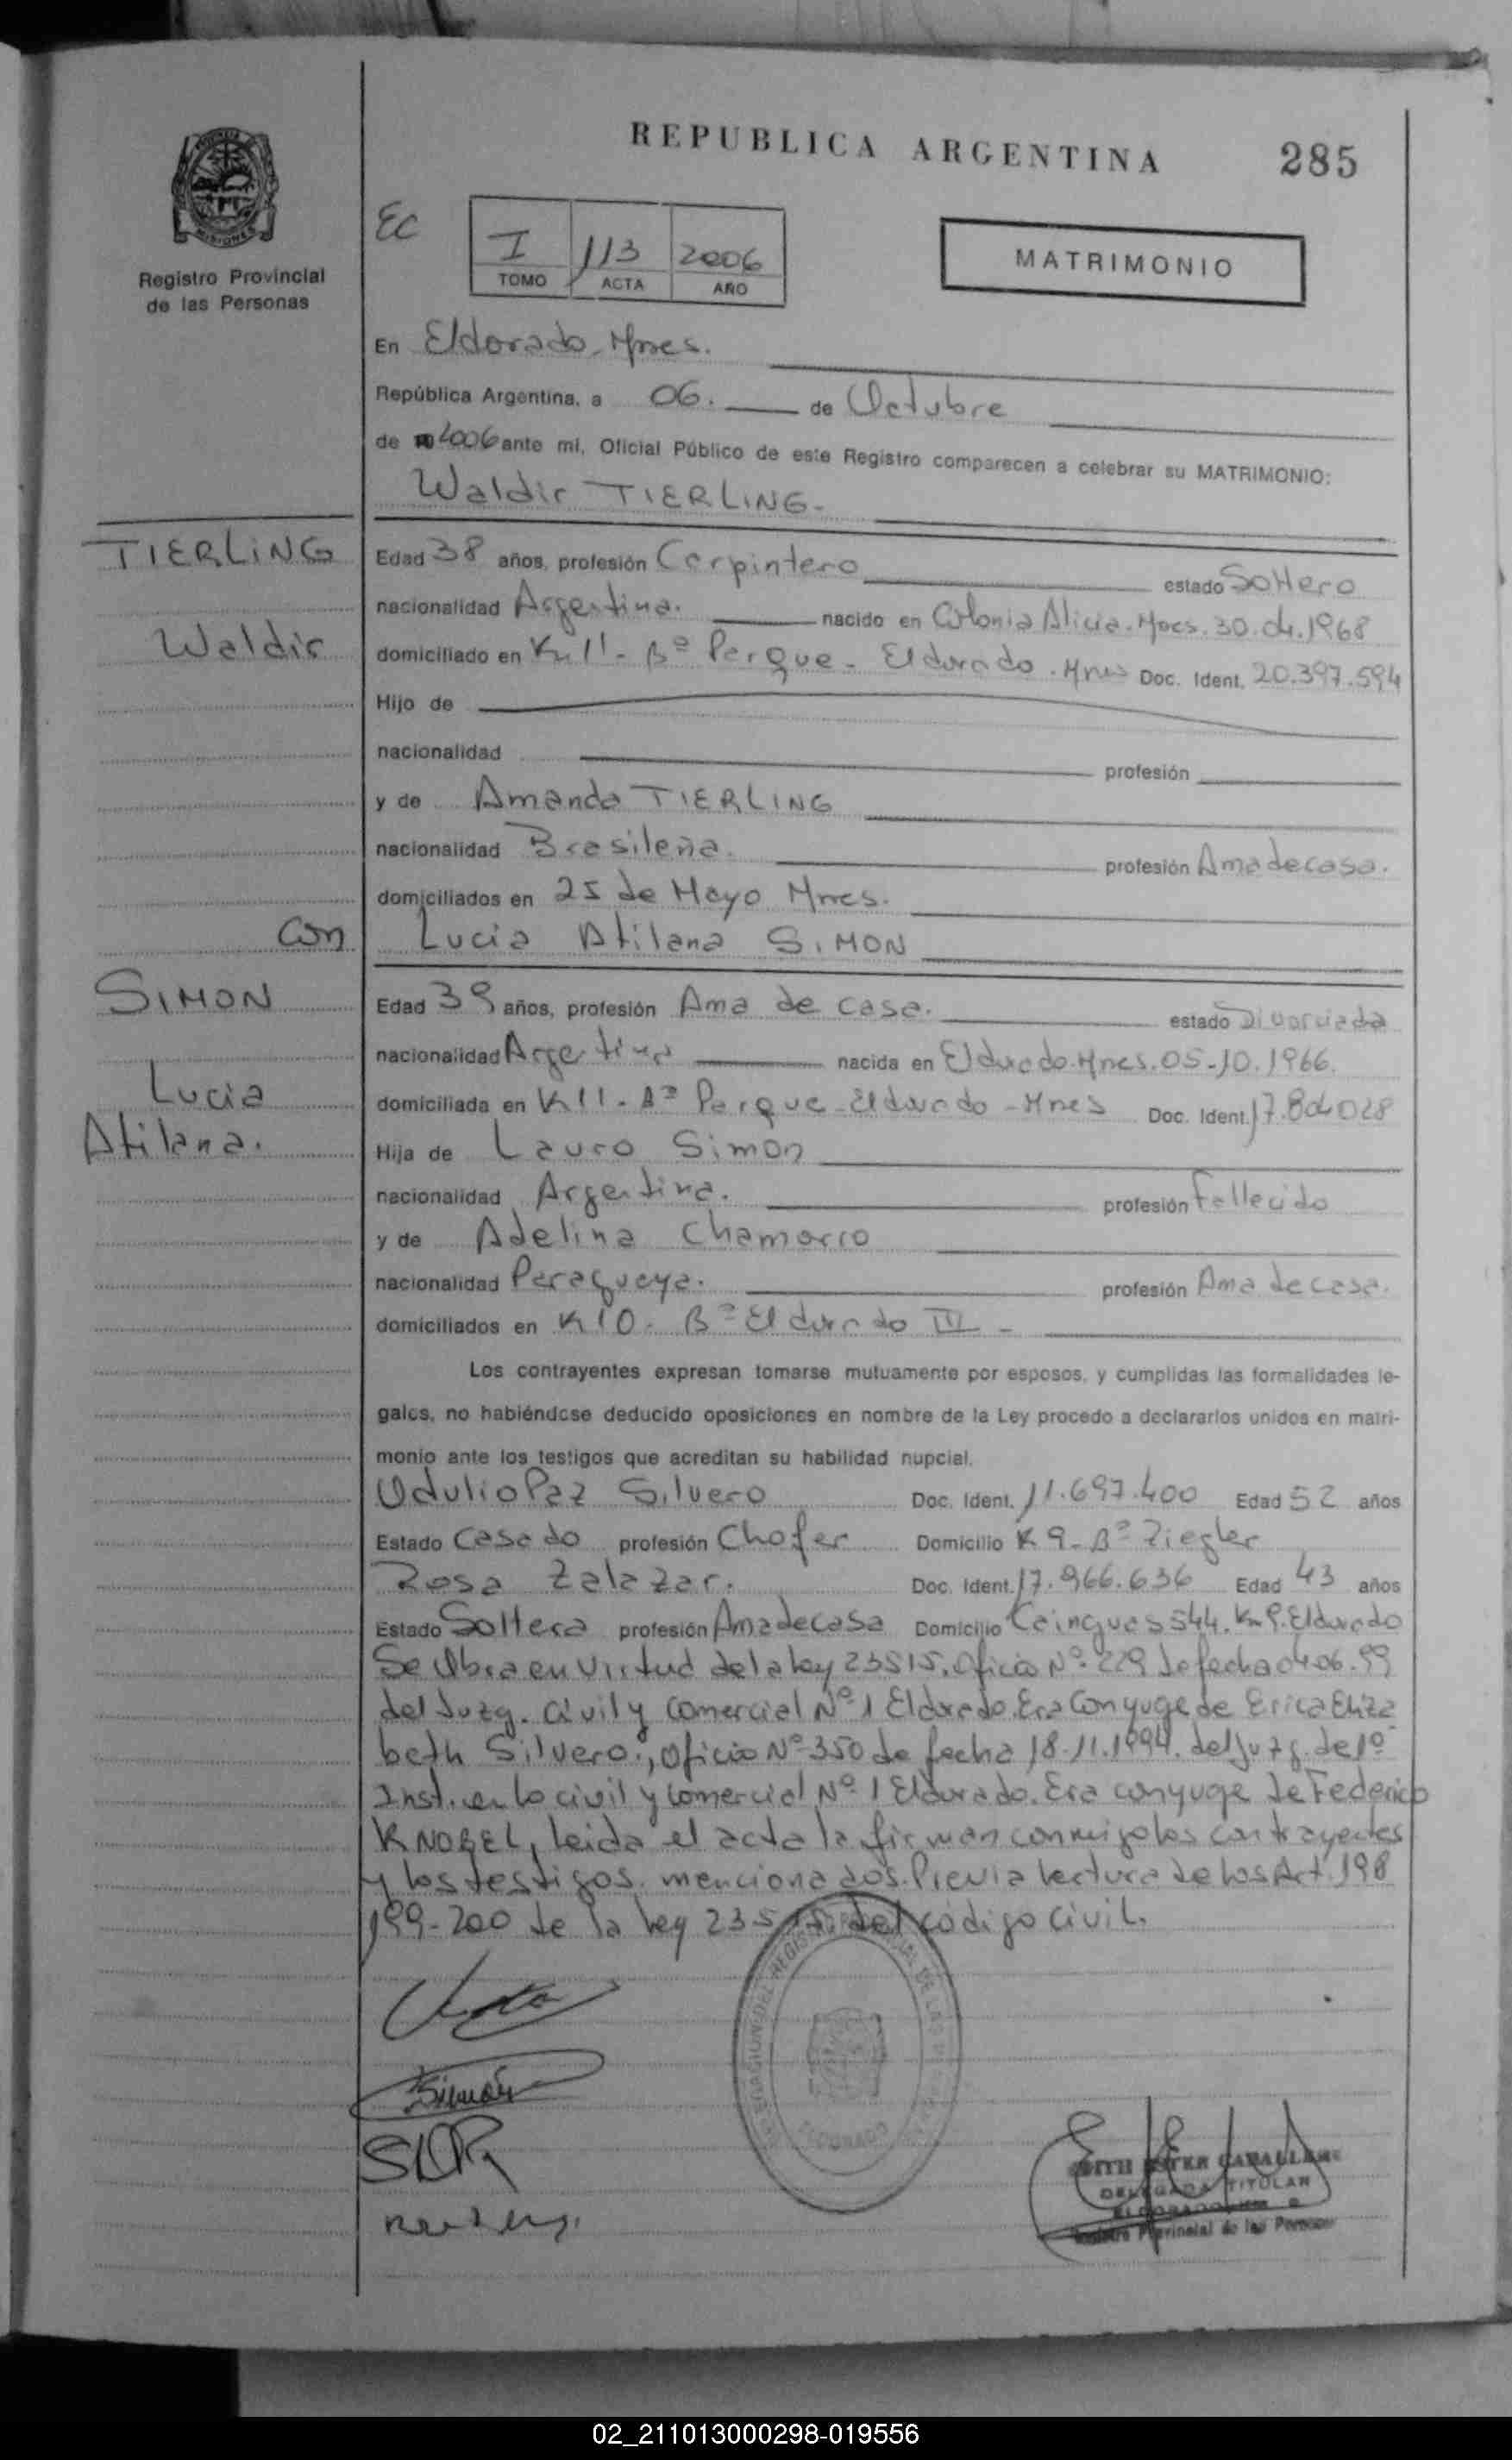 REPUBLICA ARGENTINA
285
MISIONES
Registro Provincial
de las Personas
EC
I 113 2006
TOMO ACTA AÑO
MATRIMONIO
En Eldorado Mnes.
República Argentina, a 06. de Octubre
de 2006 ante mi, Oficial Público de este Registro comparecen a celebrar su MATRIMONIO:
Waldir TIERLING
TIERLING
Waldir
Edad 38 años, profesión Carpintero estado Soltero
nacionalidad Argentina. nacido en Colonia Alicia. Mnes. 30.04.1968
domiciliado en Km 11 - Bº Parque - Eldorado. Mnes Doc. Ident. 20.397.594
Hijo de
nacionalidad profesión
y de Amanda TIERLING
nacionalidad Brasileña. profesión Ama de casa.
domiciliados en 25 de Mayo Mnes.
con
Lucia Atilana SIMON
SIMON
Lucia
Atilana.
Edad 39 años, profesión Ama de casa. estado Divorciada
nacionalidad Argentina nacida en Eldorado. Mnes. 05-10.1966.
domiciliada en K11 - Bº Parque - Eldorado - Mnes Doc. Ident. 17.804028
Hija de Lauro Simon
nacionalidad Argentina. profesión Fallecido
y de Adelina Chamorro
nacionalidad Paraguaya. profesión Ama de casa.
domiciliados en K10 - Bº Eldorado III -
Los contrayentes expresan tomarse mutuamente por esposos, y cumplidas las formalidades le-
gales, no habiéndose deducido oposiciones en nombre de la Ley procedo a declararlos unidos en matri-
monio ante los testigos que acreditan su habilidad nupcial.
Odulio Paz Silvero Doc. Ident. 11.697.400 Edad 52 años
Estado Casado profesión Chofer Domicilio K 9 - Bº Ziegler
Rosa Zalazar. Doc. Ident. 17.966.636 Edad 43 años
Estado Soltera profesión Ama de casa Domicilio Cainguas 544. Km 9. Eldorado
Se Obra en virtud de la ley 23515. Oficio Nº 229 de fecha 04.06.99
del Juzg. Civil y Comercial Nº 1 Eldorado. Era Conyuge de Erica Eliza
beth Silvero., Oficio Nº 350 de fecha 18.11.1994. del Juzg. de 1º
Inst. en lo civil y comercial Nº 1 Eldorado. Era conyuge de Federico
KNOBEL, leida el acta la firman conmigo los contrayentes
y los testigos mencionados. Previa lectura de los Art. 198
199-200 de la ley 23515 del código civil.
Simón
ELDORADO
EDITH ESTER CABALLERO
DELEGADA TITULAR
Registro Provincial de las Personas
02_211013000298-019556